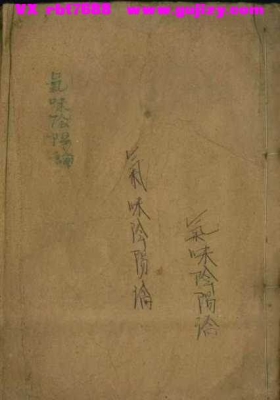 VX_rbt7688 www.gujiry.com
氣味陰陽論
氣味陰陽論
氣味陰陽論